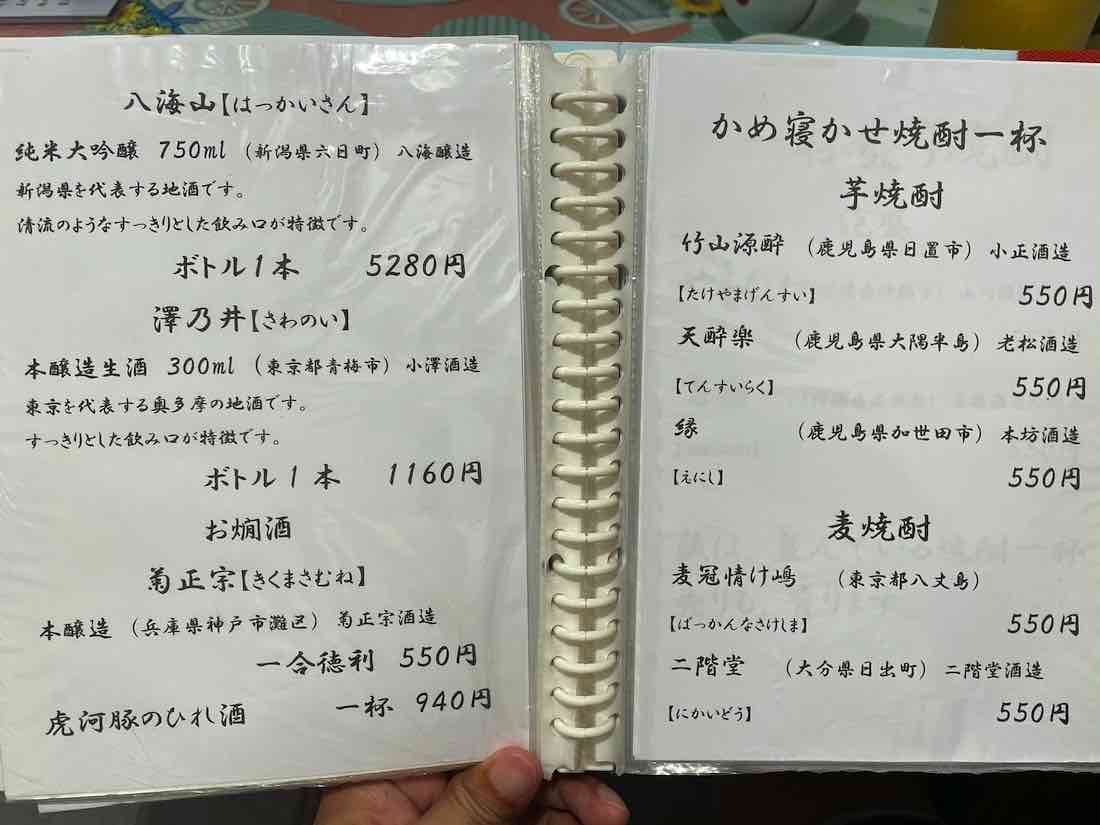 八海山【はっかいさん】
純米大吟醸 750ml (新潟県六日町) 八海醸造
新潟県を代表する地酒です。
清流のようなすっきりとした飲み口が特徴です。
ボトル1本 5280円
澤乃井【さわのい】
本醸造生酒 300ml (東京都青梅市) 小澤酒造
東京を代表する奥多摩の地酒です。
すっきりとした飲み口が特徴です。
ボトル1本 1160円
お燗酒
菊正宗【きくまさむね】
本醸造 (兵庫県神戸市灘区) 菊正宗酒造
一合徳利 550円
虎河豚のひれ酒 一杯 940円
かめ寝かせ焼酎一杯
芋焼酎
竹山源酔 (鹿児島県日置市) 小正酒造
【たけやまげんすい】 550円
天酔楽 (鹿児島県大隅半島) 老松酒造
【てんすいらく】 550円
縁 (鹿児島県加世田市) 本坊酒造
【えにし】 550円
麦焼酎
麦冠情け嶋 (東京都八丈島)
【ばっかんなさけしま】 550円
二階堂 (大分県日出町) 二階堂酒造
【にかいどう】 550円